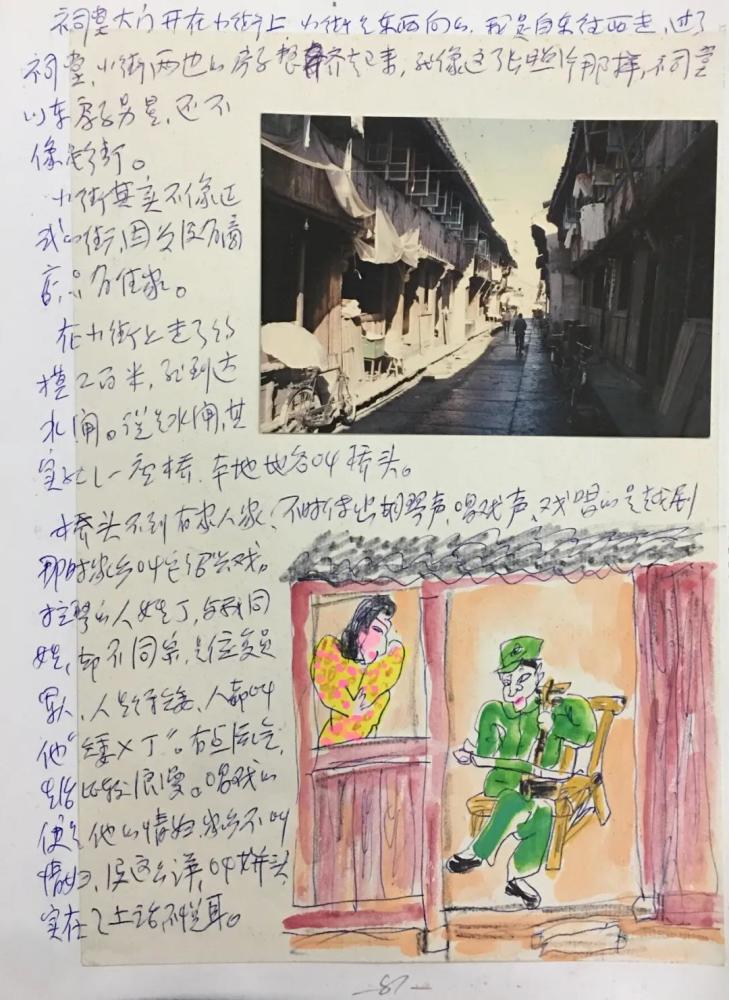 祠堂大门开在小街上 小街是东西向的, 我是自东往西走, 过了
祠堂, 小街两边的房子整齐起来, 就像这张照片那样, 祠堂
以东房子另星, 还不
像老街。
小街其实不像这
式的街, 因为没有商
店只有住家。
在小街上走了约
摸二百米, 就到达
水闸。说是水闸, 其
实是一座桥, 本地地名叫桥头。
桥头不到有家人家, 不时传出胡琴声、唱戏声、戏唱的是越剧
那时家乡叫它绍兴戏。
拉琴的人姓丁, 与我同
姓, 却不同宗, 是位复员
军人, 人长得矮, 人都叫
他"矮×丁"。有点流气,
生活比较浪漫。唱戏的
便是他的情妇, 家乡不叫
情妇, 没这么洋, 叫姘头
实在
87